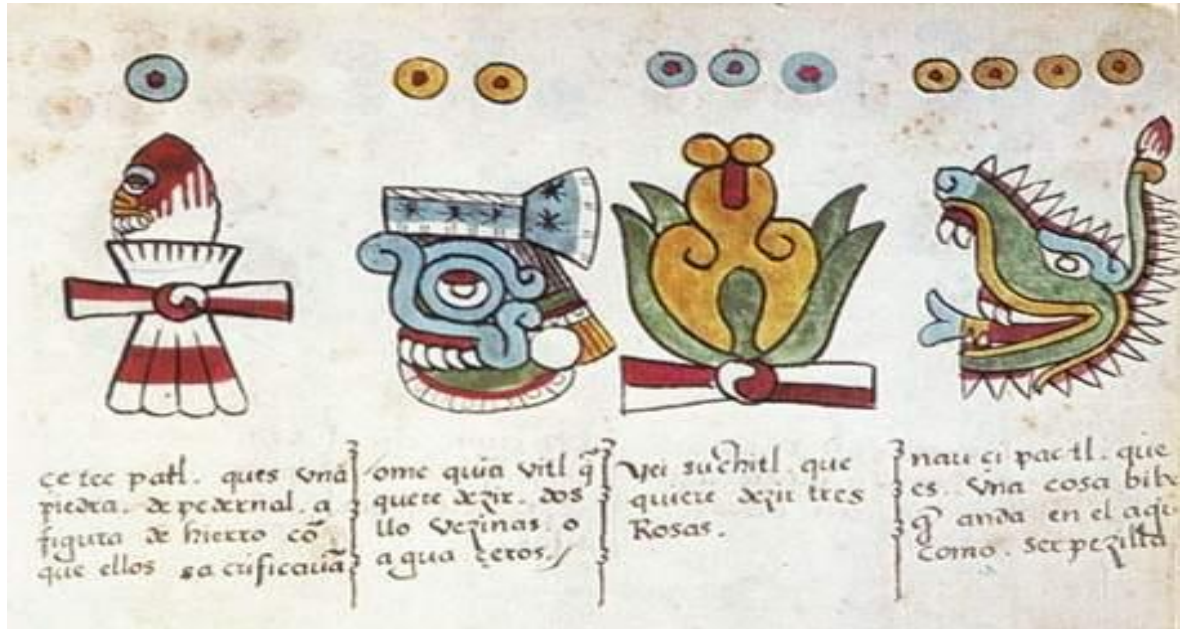 çe tec patl. ques vna
piedra. de pedernal. a
figura de hierro cō
que ellos sa crificauā
ome quia vitl q̃
quere dezir. dos
llo vezinas o
a gua çeros.
yei suchitl. que
quiere dezir tres
Rosas.
nau çi pac tl. que
es. vna cosa bibo
q̃ anda en el agu
como. serpezilla